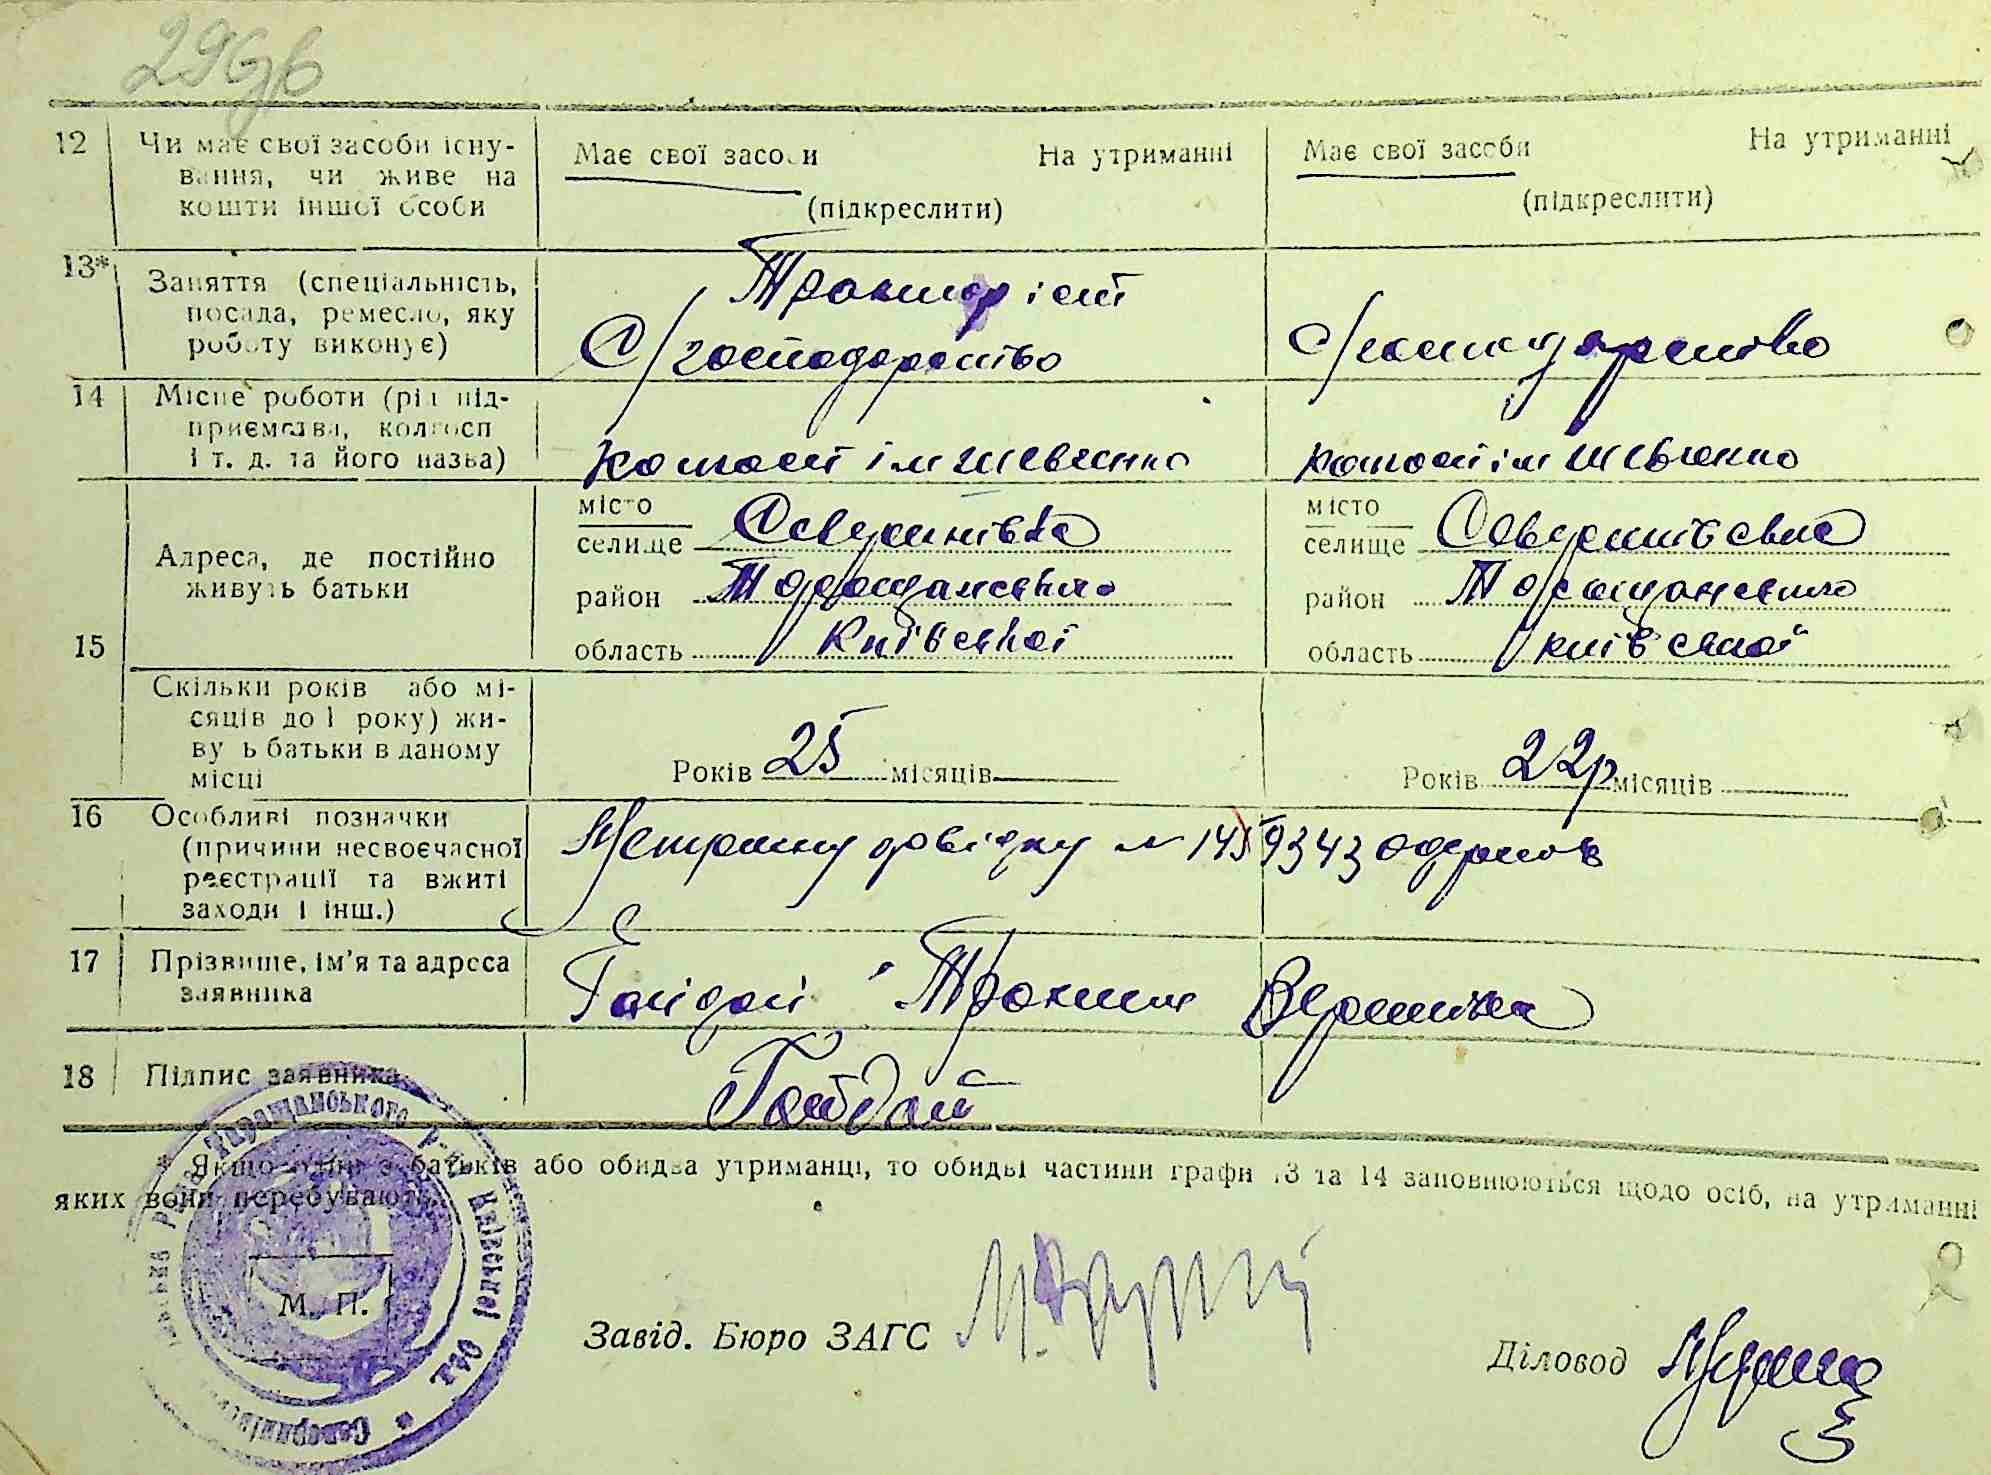 29зв
12 Чи має свої засоби існування, чи живе на кошти іншої особи
Має свої засоби На утриманні
(підкреслити)
Має свої засоби На утриманні
(підкреслити)
13* Заняття (спеціальність, посада, ремесло, яку роботу виконує)
Тракторіст
С/господарство
С/господарство
14 Місце роботи (рід підприємства, колгосп і т. д. та його назва)
Колгосп ім Шевченко
Колгосп ім Шевченко
15 Адреса, де постійно живуть батьки
місто
селище Северинівка
район Торащанського
область Київської
місто
селище Северинівська
район Торащанського
область Київської
Скільки років або місяців до 1 року) живуть батьки в даному місці
Років 25 місяців
Років 22р місяців
16 Особливі позначки (причини несвоєчасної реєстрації та вжиті заходи і інш.)
Метричну довідку № 1459343 одержав
17 Прізвище, ім'я та адреса заявника
Гайдай Трохим
18 Підпис заявника
Гайдай
* Якщо один з батьків або обидва утриманці, то обидві частини графи 13 та 14 заповнюються щодо осіб, на утриманні
яких вони перебувають.
Таращанського р-ну Київської обл.
М. П.
Завід. Бюро ЗАГС
Діловод